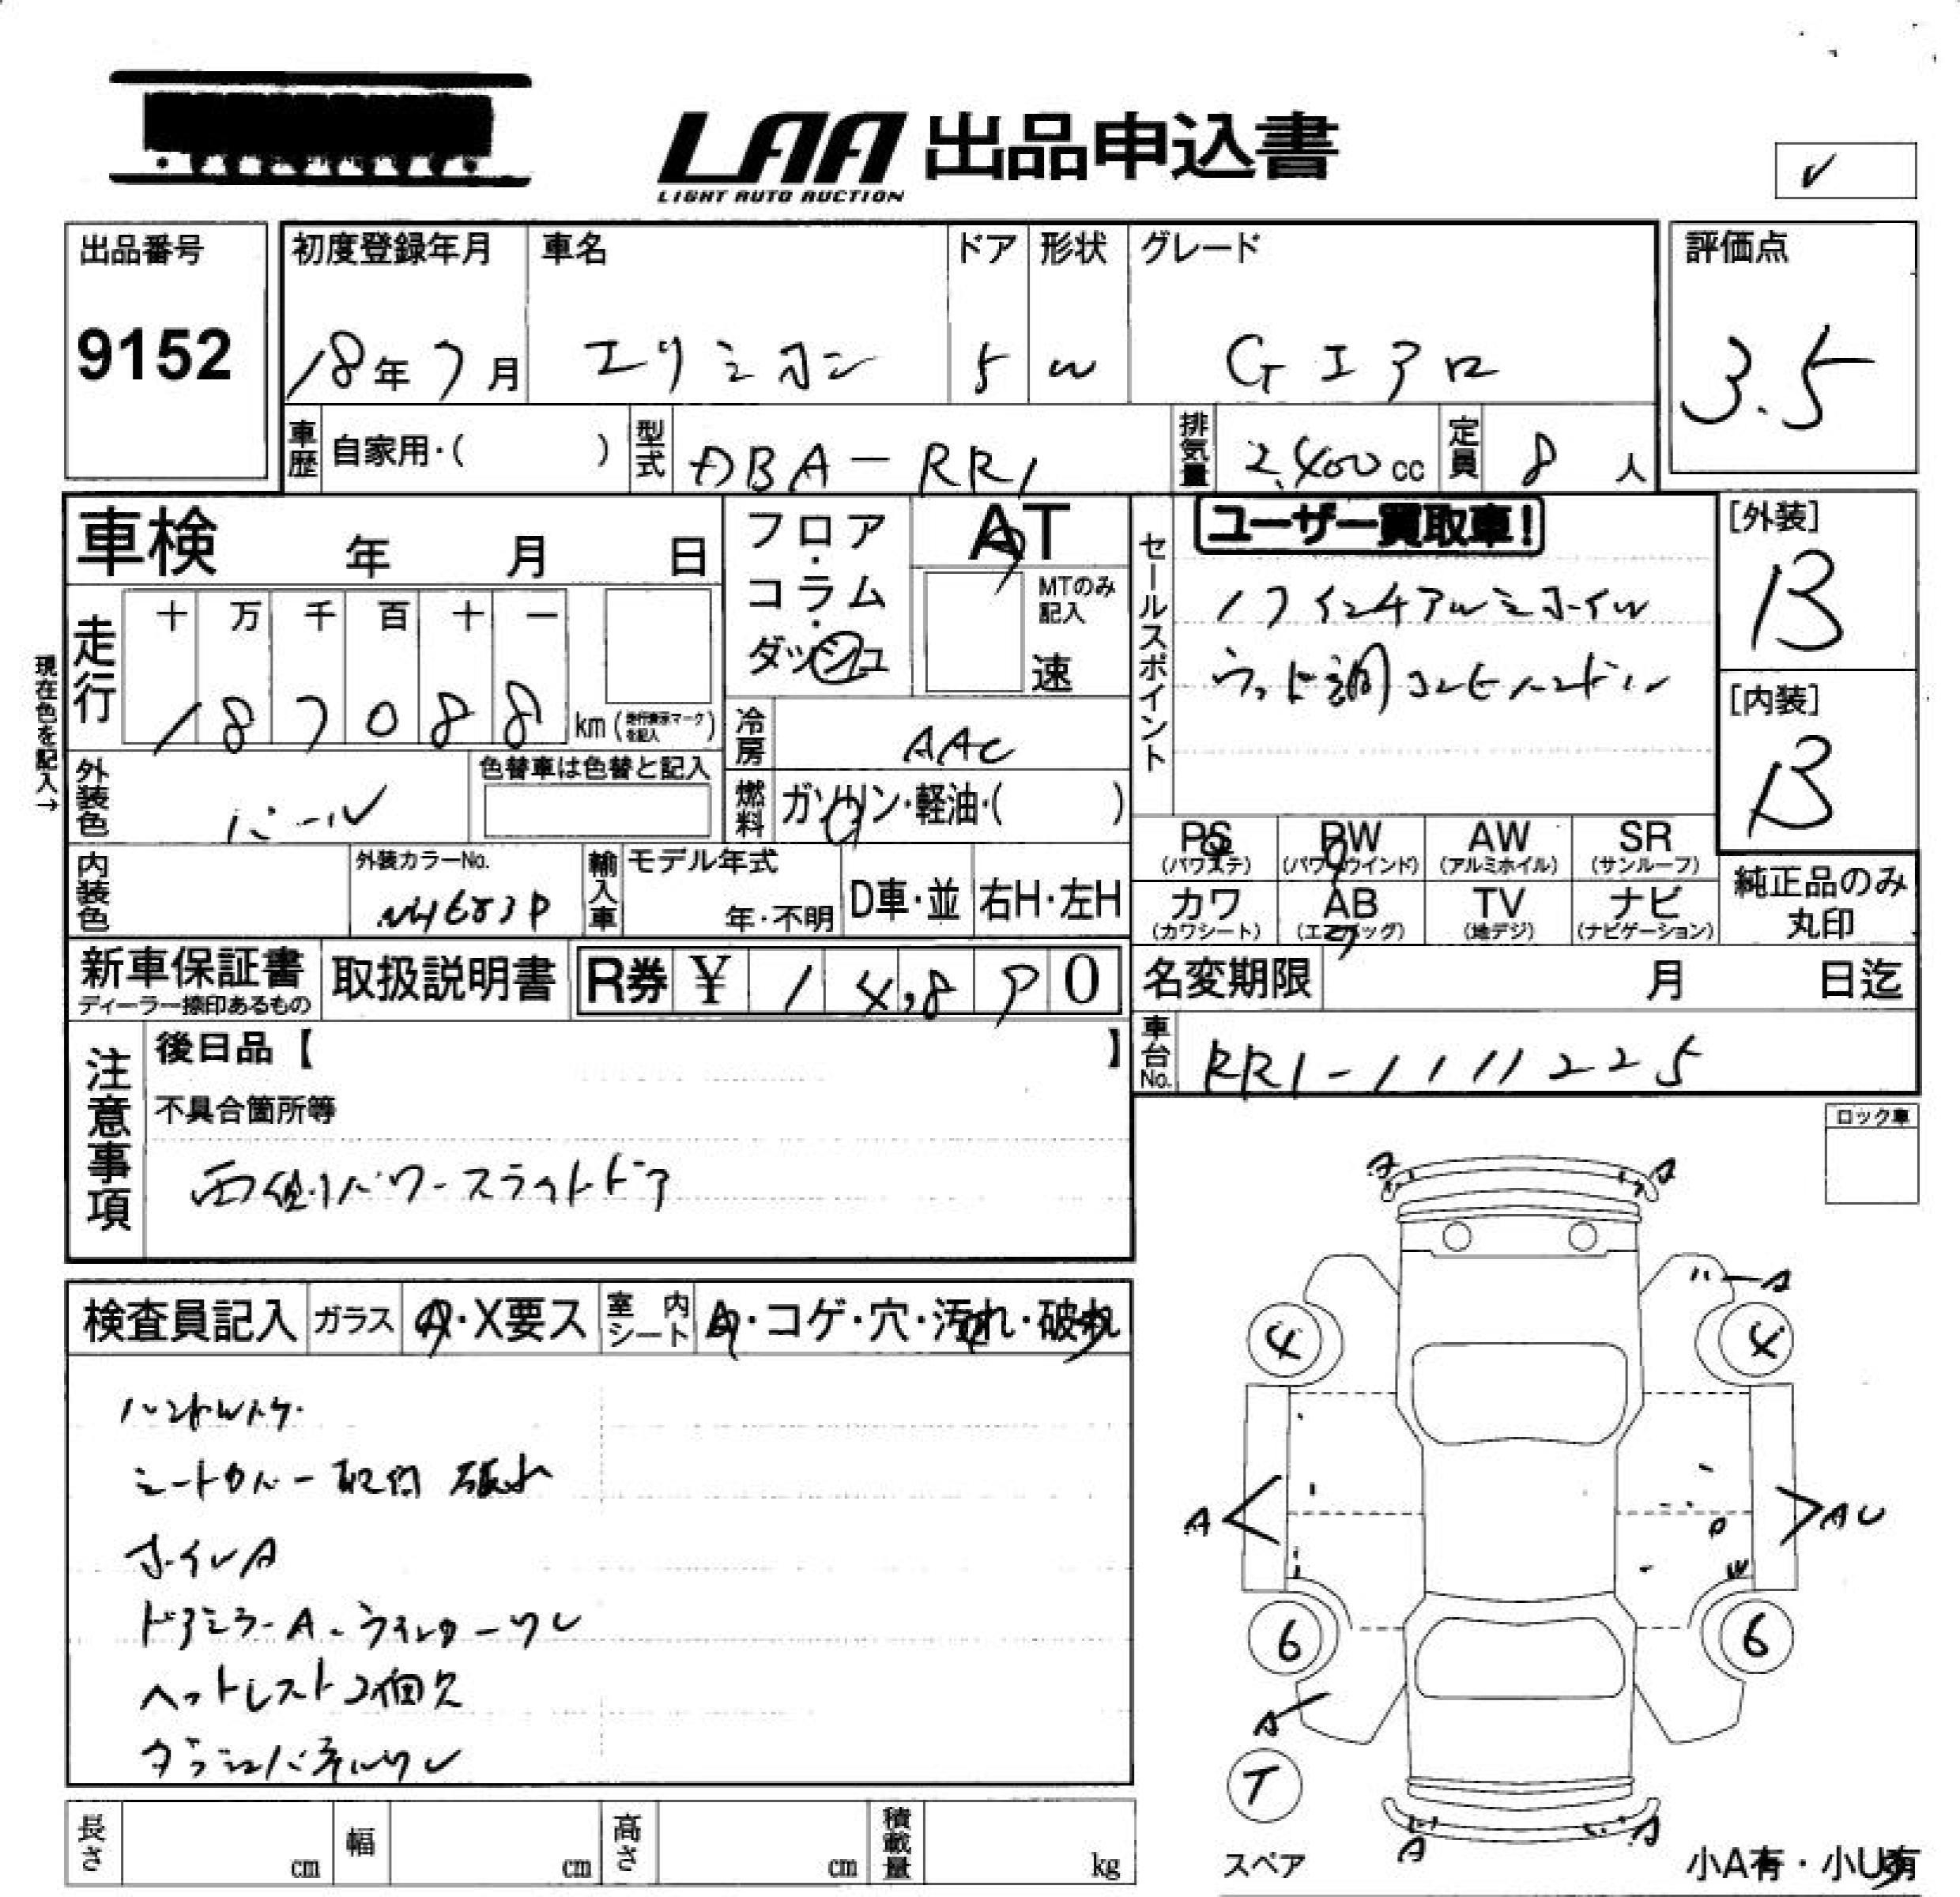 LAA 出品申込書
LIGHT AUTO AUCTION
✓
出品番号 初度登録年月 車名 ドア 形状 グレード 評価点
9152 18年7月 エリシオン 5 W Gエアロ 3.5
車歴 自家用・( ) 型式 DBA-RR1 排気量 2,400cc 定員 8人
車検 年 月 日
フロア・コラム・ダッシュ
AT
MTのみ記入
速
セールスポイント
ユーザー買取車!
17インチアルミホイル
ウッド調コンビハンドル
[外装]
B
[内装]
B
現在色を記入→
走行 十 万 千 百 十 一
187088 km(走行表示マークを記入)
冷房 AAC
外装色 パール 色替車は色替と記入
燃料 ガソリン・軽油・( )
PS(パワステ) PW(パワーウインド) AW(アルミホイル) SR(サンルーフ)
カワ(カワシート) AB(エアバッグ) TV(地デジ) ナビ(ナビゲーション)
純正品のみ丸印
内装色 外装カラーNo. NH683P 輸入車 モデル年式 年・不明 D車・並 右H・左H
新車保証書 ディーラー捺印あるもの 取扱説明書 R券 ¥ 14,890
名変期限 月 日迄
車台No. RR1-1111225
注意事項
後日品【 】
不具合箇所等
両側パワースライドドア
ロック車
検査員記入 ガラス A・X要ス 室内シート A・コゲ・穴・汚れ・破れ
ハンドルスケ
シートカバー取付 破れ
ホイルA
ドアミラーA・ウインカーワレ
ヘッドレスト2個欠
ダッシュパネルワレ
A A
A
4 4
A AU
W
6 6
A
T
A A
スペア
小A有・小U有
長さ cm 幅 cm 高さ cm 積載量 kg